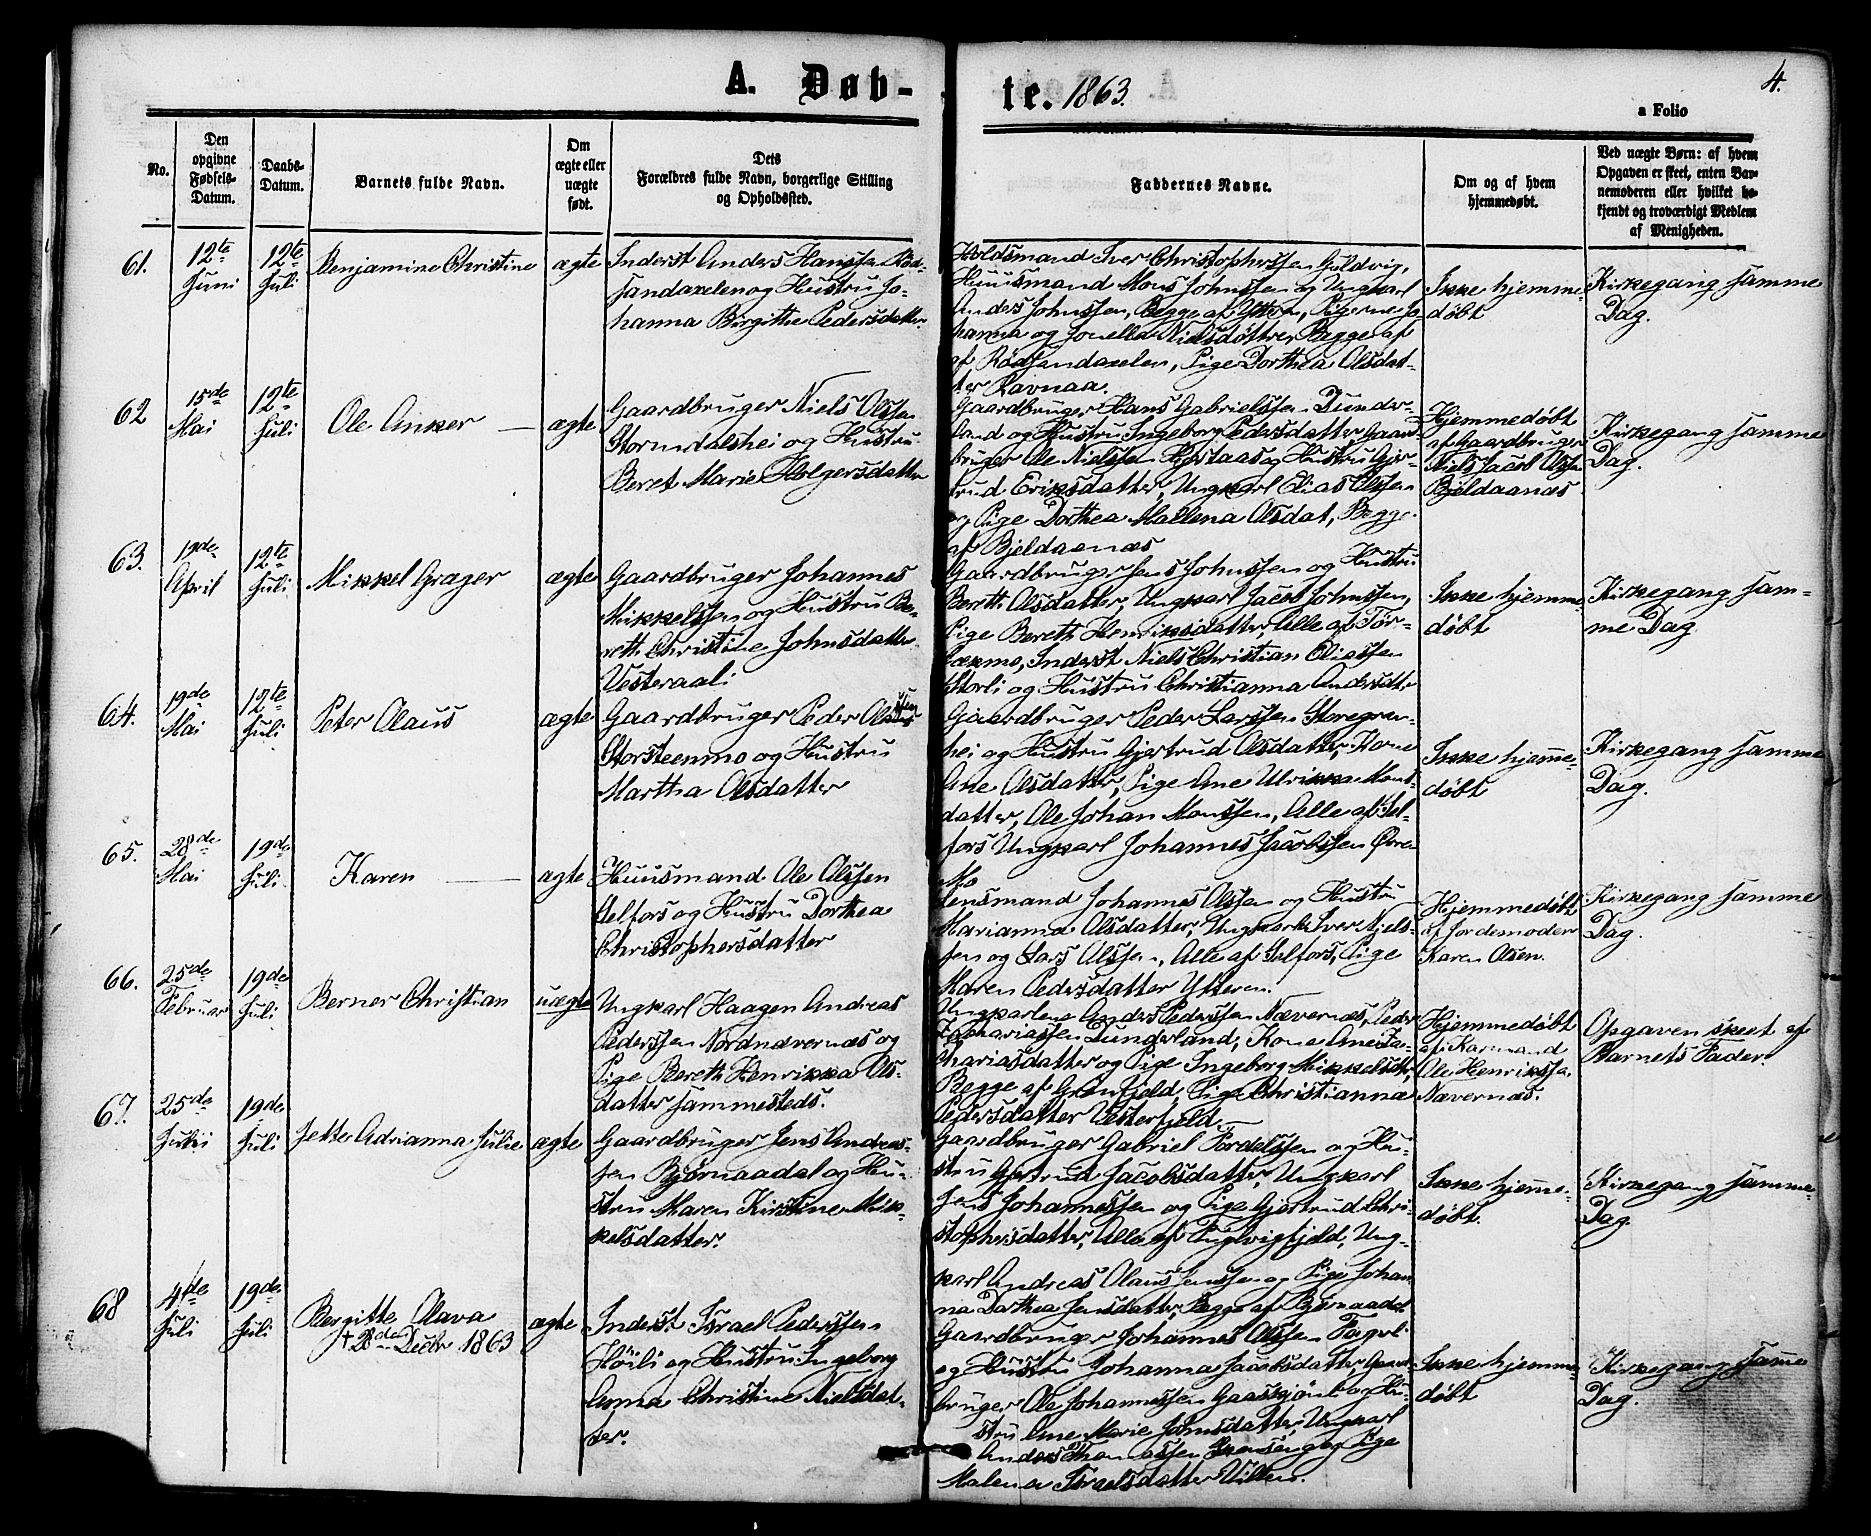 A. Døb-
te. 1863.
4.
a Folio
No.
Den
opgivne
Fødsels-
Datum.
Daabs-
Datum.
Barnets fulde Navn.
Om
ægte eller
uægte
født.
Dets
Forældres fulde Navn, borgerlige Stilling
og Opholdssted.
Faddernes Navne.
Om og af hvem
hjemmedøbt.
Ved uægte Børn: af hvem
Opgaven er skeet, enten Bar-
nemoderen eller hvilket be-
kjendt og troværdigt Medlem
af Menigheden.
61.
12te
Juni
12te
Juli
Benjamine Christine
ægte
Inderst Anders Hanssen Rød-
sandaxelen og Hustru Jo-
hanna Birgitte Pedersdatter
Holdsmand Iver Christophersen Guldvig,
Huusmand Mons Johnssen og Ungkarl
Anders Johnssen, Begge af Ytteren, Pigerne Jo-
hanna og Jonella Nielsdøttre, Begge af
af Rødsandaxelen, Pige Dorthea Olsdat-
ter Ravnaa.
Ikke hjemme-
døbt
Kirkegang samme
Dag.
62
15de
Mai
12te
Juli
Ole Anker
ægte
Gaardbruger Niels Olssen
Stormdalshei og Hustru
Beret Marie Holgersdatter
Gaardbruger Hans Gabrielssen Dunder-
land og Hustru Ingeborg Pedersdatter, Gaard-
bruger Ole Nielssen og Hustru Gjer-
trud Eriksdatter, Ungkarl Elias Olssen
og Pige Dorthea Mallena Olsdat, Begge
af Bjeldaanæs
Hjemmedøbt
af Gaardbruger
Niels Jacob Olsen
Bjeldaanæs
Kirkegang samme
Dag.
63.
19de
April
12te
Juli
Mikkel Græger
ægte
Gaardbruger Johannes
Mikkelssen og Hustru Be-
reth Christine Johnsdatter
Vesteraali
Gaardbruger Jens Johnssen og Hustru
Bereth Olsdatter, Ungkarl Jacob Johnssen,
Pige Bereth Henriksdatter, Alle af
Inderst Niels Christian Eliassen
Storli og Hustru Christianna Andersdtr
Ikke hjemme
døbt
Kirkegang sam-
me Dag
64.
19de
Mai
12te
Juli
Peter Olaus
ægte
Gaardbruger Peder
Storsteenmo og Hustru
Martha Olsdatter
Gaardbruger Peder Larssen Storegran-
hei og Hustru Gjertrud Olsdatter, Kone
Ane Olsdatter, Pige Ane Ulrikka Mons-
datter, Ole Johan Monssen, Alle af Sel-
fors Ungkarl Johannes Jacobssen Øvre
Mo
Ikke hjemme-
døbt
Kirkegang samme
Dag.
65.
28de
Mai
19de
Juli
Karen
ægte
Huusmand Ole Olssen
Selfors og Hustru Dorthea
Christophersdatter
Lensmand Johannes Olssen og Hustru
Marianna Olsdatter, Ungkarle Iver Niels-
sen og Lars Olssen, Alle af Selfors, Pige
Maren Pedersdatter Ytteren.
Hjemmedøbt
af Jordemoder
Karen Olsen.
Kirkegang samme
Dag.
66.
25de
Februar
19de
Juli
Berner Christian
uægte
Ungkarl Haagen Andreas
Pederssen Nordnævernæs og
Pige Bereth Henrikka Ols-
datter sammesteds.
Ungkarlene Anders Pederssen Nævernæs, Peder
Zachariassen Dunderland, Kone Ane Za-
chariasdatter og Pige Ingeborg Mikkelsdtr,
Begge af Grønfjeld, Pige Christianna
Pedersdatter Vesterfjeld.
Hjemmedøbt
af Karmand
Ole Henriksen
Nævernæs.
Opgaven skeet af
Barnets Fader.
67.
25de
Juni
19de
Juli
Jetter Adrianna Julie
ægte
Gaardbruger Jens Andreas-
sen Bjørnaadal og Hu-
stru Maren Kirstine Mik-
kelsdatter.
Gaardbruger Gabriel Tordelssen og Hu-
stru Gjertrud Jacobsdatter, Ungkarl
Jens Johannessen og Pige Gjertrud Chri-
stophersdatter, Alle af Fuglvigfjeld, Ung-
karl Andreas Olaus Jenssen og Pige Johan-
na Dorthea Jensdatter, Begge af Bjørnaadal
Ikke hjemme-
døbt.
Kirkegang samme
Dag.
68
4de
Juli
19de
Juli
Bergitte Olava
† 28de Decbr 1863
ægte
Inderst Israel Pederssen
Høili og Hustru Ingeborg
Anna Christine Nielsdat-
ter.
Gaardbruger Johannes Olssen Fagerli
og Hustru Johanna Jacobsdatter, Gaard-
bruger Ole Johannessen og Hu-
stru Ane Marie Johnsdatter, Ungkarl
Anders Thomassen og Pige
Malena Israelsdatter
Ikke hjemme-
døbt
Kirkegang samme
Dag.